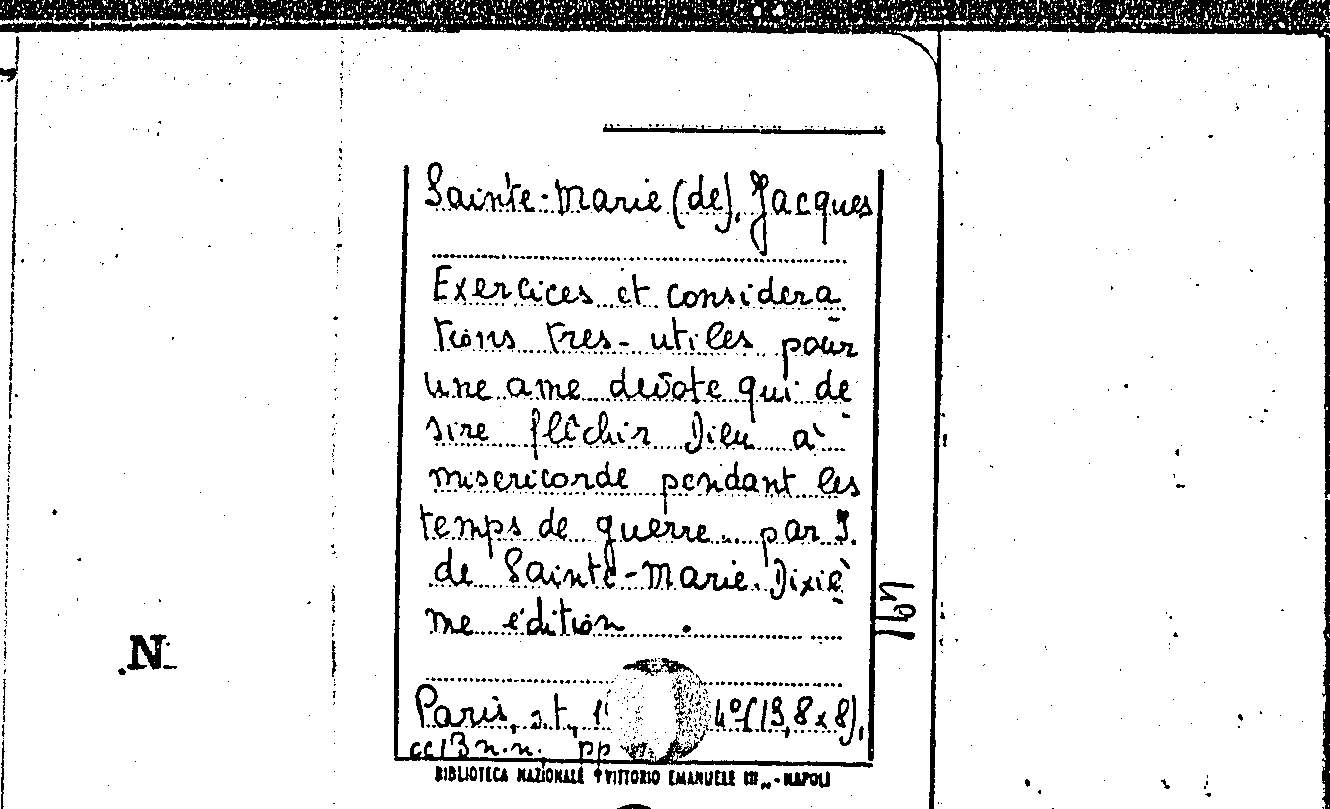 Sainte-Marie (de), Jacques
Exercices et considera
tions tres-utiles pour
une ame devote qui de
sire flêchir Dieu à
misericorde pendant les
temps de guerre... par J.
de Sainte-Marie. Dixiè
me édition.
Paris, s.t., 4º (13,8x8),
cc13 n.n. pp
BIBLIOTECA NAZIONALE "VITTORIO EMANUELE III" - NAPOLI
N